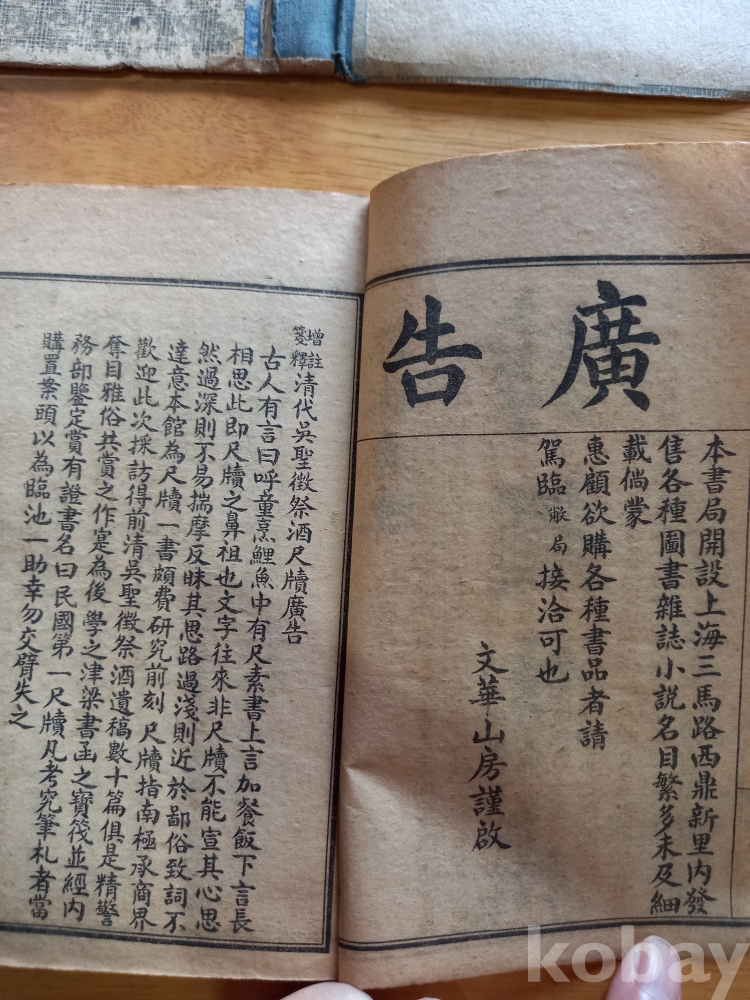 廣告
本書局開設上海三馬路西鼎新里內發
售各種圖書雜誌小説名目繁多未及細
載倘蒙
惠顧欲購各種書品者請
駕臨敝局接洽可也
文華山房謹啟
增註箋釋清代吳聖徵祭酒尺牘廣告
古人有言曰呼童烹鯉魚中有尺素書上言加餐飯下言長
相思此即尺牘之鼻祖也文字往來非尺牘不能宣其心思
然過深則不易揣摩反昧其思路過淺則近於鄙俗致詞不
達意本館為尺牘一書頗費研究前刻尺牘指南極承商界
歡迎此次採訪得前清吳聖徵祭酒遺稿數十篇俱是精警
奪目雅俗共賞之作寔為後學之津梁書函之寶筏並經內
務部鑒定賞有證書名曰民國第一尺牘凡考究筆札者當
購置案頭以為臨池一助幸勿交臂失之
kobay